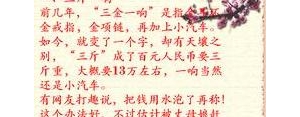 前几年，“三金一响”是指金耳环
金戒指，金项链，再加上小汽车。
如今，就变了一个字，却有天壤之
别，“三斤”成了百元人民币要三
斤重，大概要13万左右，一响当然
还是小汽车。
有网友打趣说，把钱用水泡了再称！
这个办法好，不过估计被丈母娘赶